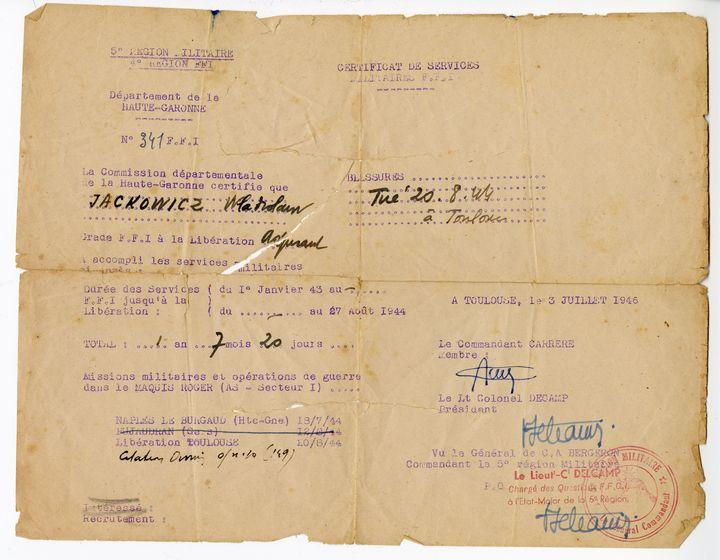 5° REGION MILITAIRE
4° REGION FFI
Département de la
HAUTE-GARONNE
N° 341 F.F.I
CERTIFICAT DE SERVICES
MILITAIRES F.F.I
La Commission départementale
de la Haute-Garonne certifie que
JACKOWICZ
Grade F.F.I à la Libération
accompli les services militaires
Durée des Services ( du Ie Janvier 43 au
F.F.I jusqu'à la )
Libération : ( du ...... au 27 Août 1944
TOTAL : 1 an 7 mois 20 jours
Missions militaires et opérations de guerre
dans le MAQUIS ROGER (AS - Secteur I)
NAPLES LE BURGAUD (Hte-Gne) 18/7/44
Libération TOULOUSE
BLESSURES
Tué 20.8.44
à Toulouse
A TOULOUSE, le 3 JUILLET 1946
Le Commandant CARRERE
Membre :
Le Lt Colonel DECAMP
Président
Vu la Général de C.A BERGERON
Commandant la 5° région Militaire
P.O
Le Lieut-Cl DELCAMP
Chargé des Questions F.F.C.I.
à l'Etat-Major de la 5e Région.
MILITAIRE
Général Commandant
Intéressé :
Recrutement :